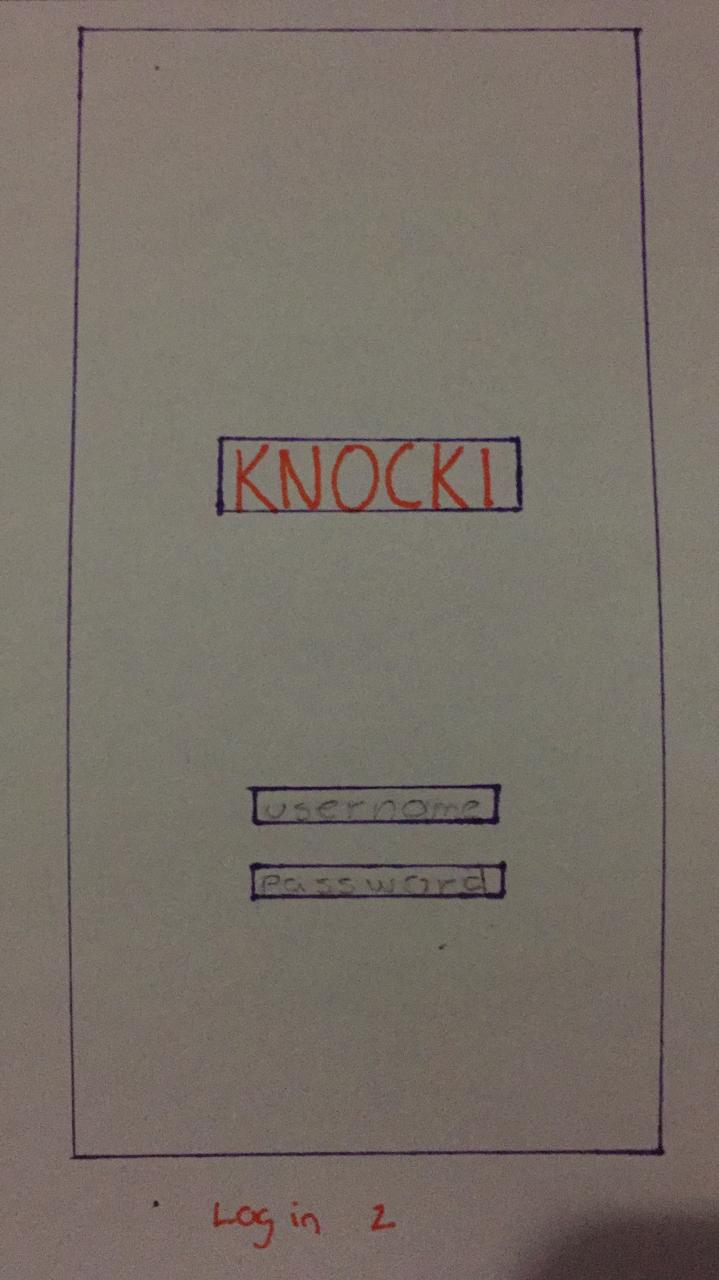 KNOCKI
username
password
Log in 2